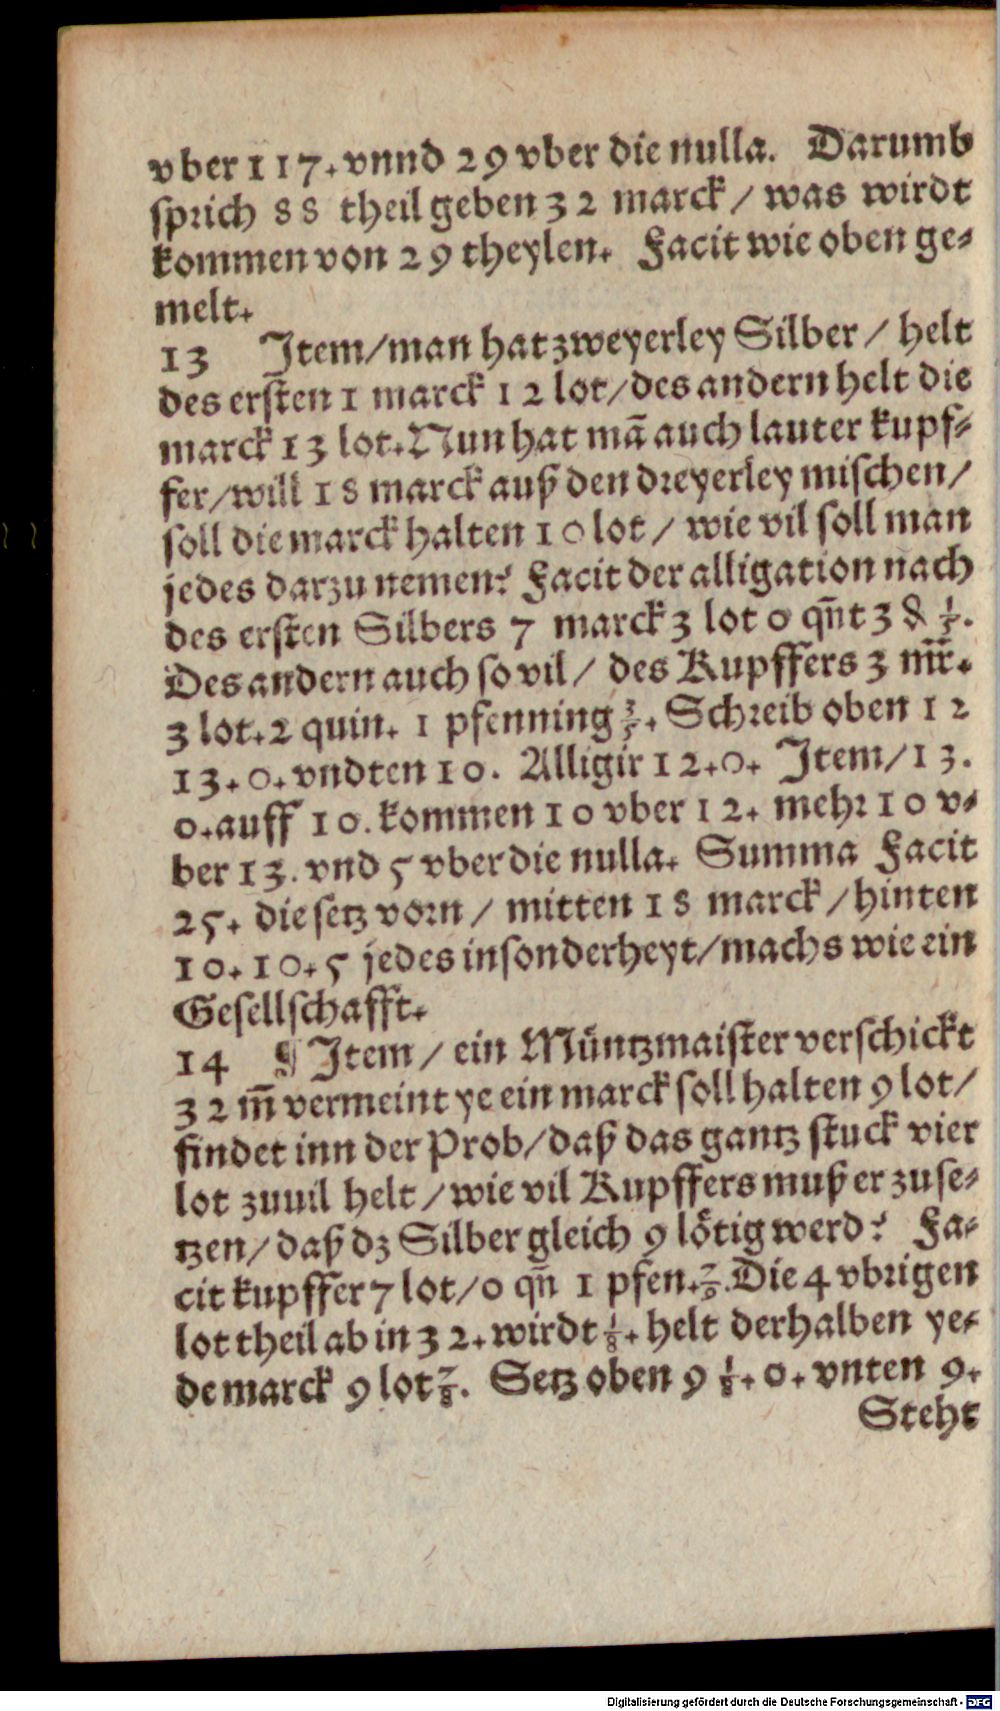 vber 117. vnnd 29 vber die nulla. Darumb
sprich 88 theil geben 32 marck / was wirdt
kommen von 29 theylen. Facit wie oben ge-
melt.
13 Item/man hat zweyerley Silber / helt
des ersten 1 marck 12 lot/des andern helt die
marck 13 lot. Nun hat mā auch lauter kupf-
fer/will 18 marck auß den dreyerley mischen/
soll die marck halten 10 lot / wie vil soll man
jedes darzu nemen? Facit der alligation nach
des ersten Silbers 7 marck 3 lot 0 qñt 3 ₰ 1/5.
Des andern auch so vil / des Kupffers 3 mr̄.
3 lot. 2 quin. 1 pfenning 3/5. Schreib oben 12
13. 0. vndten 10. Alligir 12. 0. Item/13.
0. auff 10. kommen 10 vber 12. mehr 10 v-
ber 13. vnd 5 vber die nulla. Summa Facit
25. die setz vorn / mitten 18 marck / hinten
10. 10. 5 jedes insonderheyt/machs wie ein
Gesellschafft.
14 ¶ Item / ein Müntzmaister verschickt
32 m̄ vermeint ye ein marck soll halten 9 lot/
findet inn der Prob/daß das gantz stuck vier
lot zuuil helt / wie vil Kupffers muß er zuse-
tzen/daß dz Silber gleich 9 lötig werd? Fa-
cit kupffer 7 lot/0 qñ 1 pfen. 7/9. Die 4 vbrigen
lot theil ab in 32. wirdt 1/8. helt derhalben ye-
de marck 9 lot 1/8. Setz oben 9 1/8. 0. vnten 9.
Steht
Digitalisierung gefördert durch die Deutsche Forschungsgemeinschaft - DFG